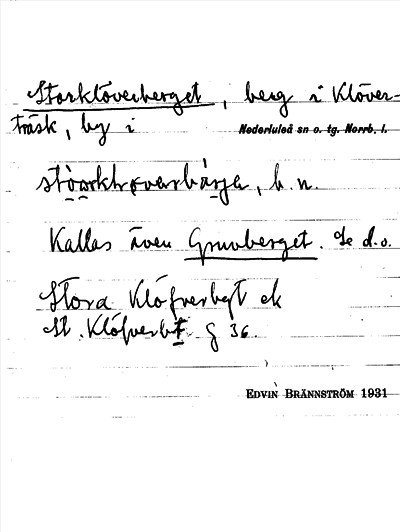 Storklöverberget, berg i Klöver-
träsk, by i Nederluleå sn o. tg. Norrb. l.
b. n.
Kallas även Gruvberget. Se d.o.
Stora Klöfverbgt ek
St. Klöfverbt. g 36.
EDVIN BRÄNNSTRÖM 1931